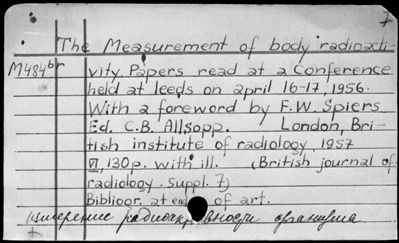 The Measurement of body radioacti-
M484br vity. Papers read at a Conference
held at leeds on april 16-17, 1956.
With a foreword by F.W. Spiers
Ed. C.B. Allsopp. London, Bri-
tish institute of radiology, 1957
VI, 130p. with ill. (British journal of
radiology. Suppl. 7)
Bibliogr. at end of art.
измерение радиоактивности организма